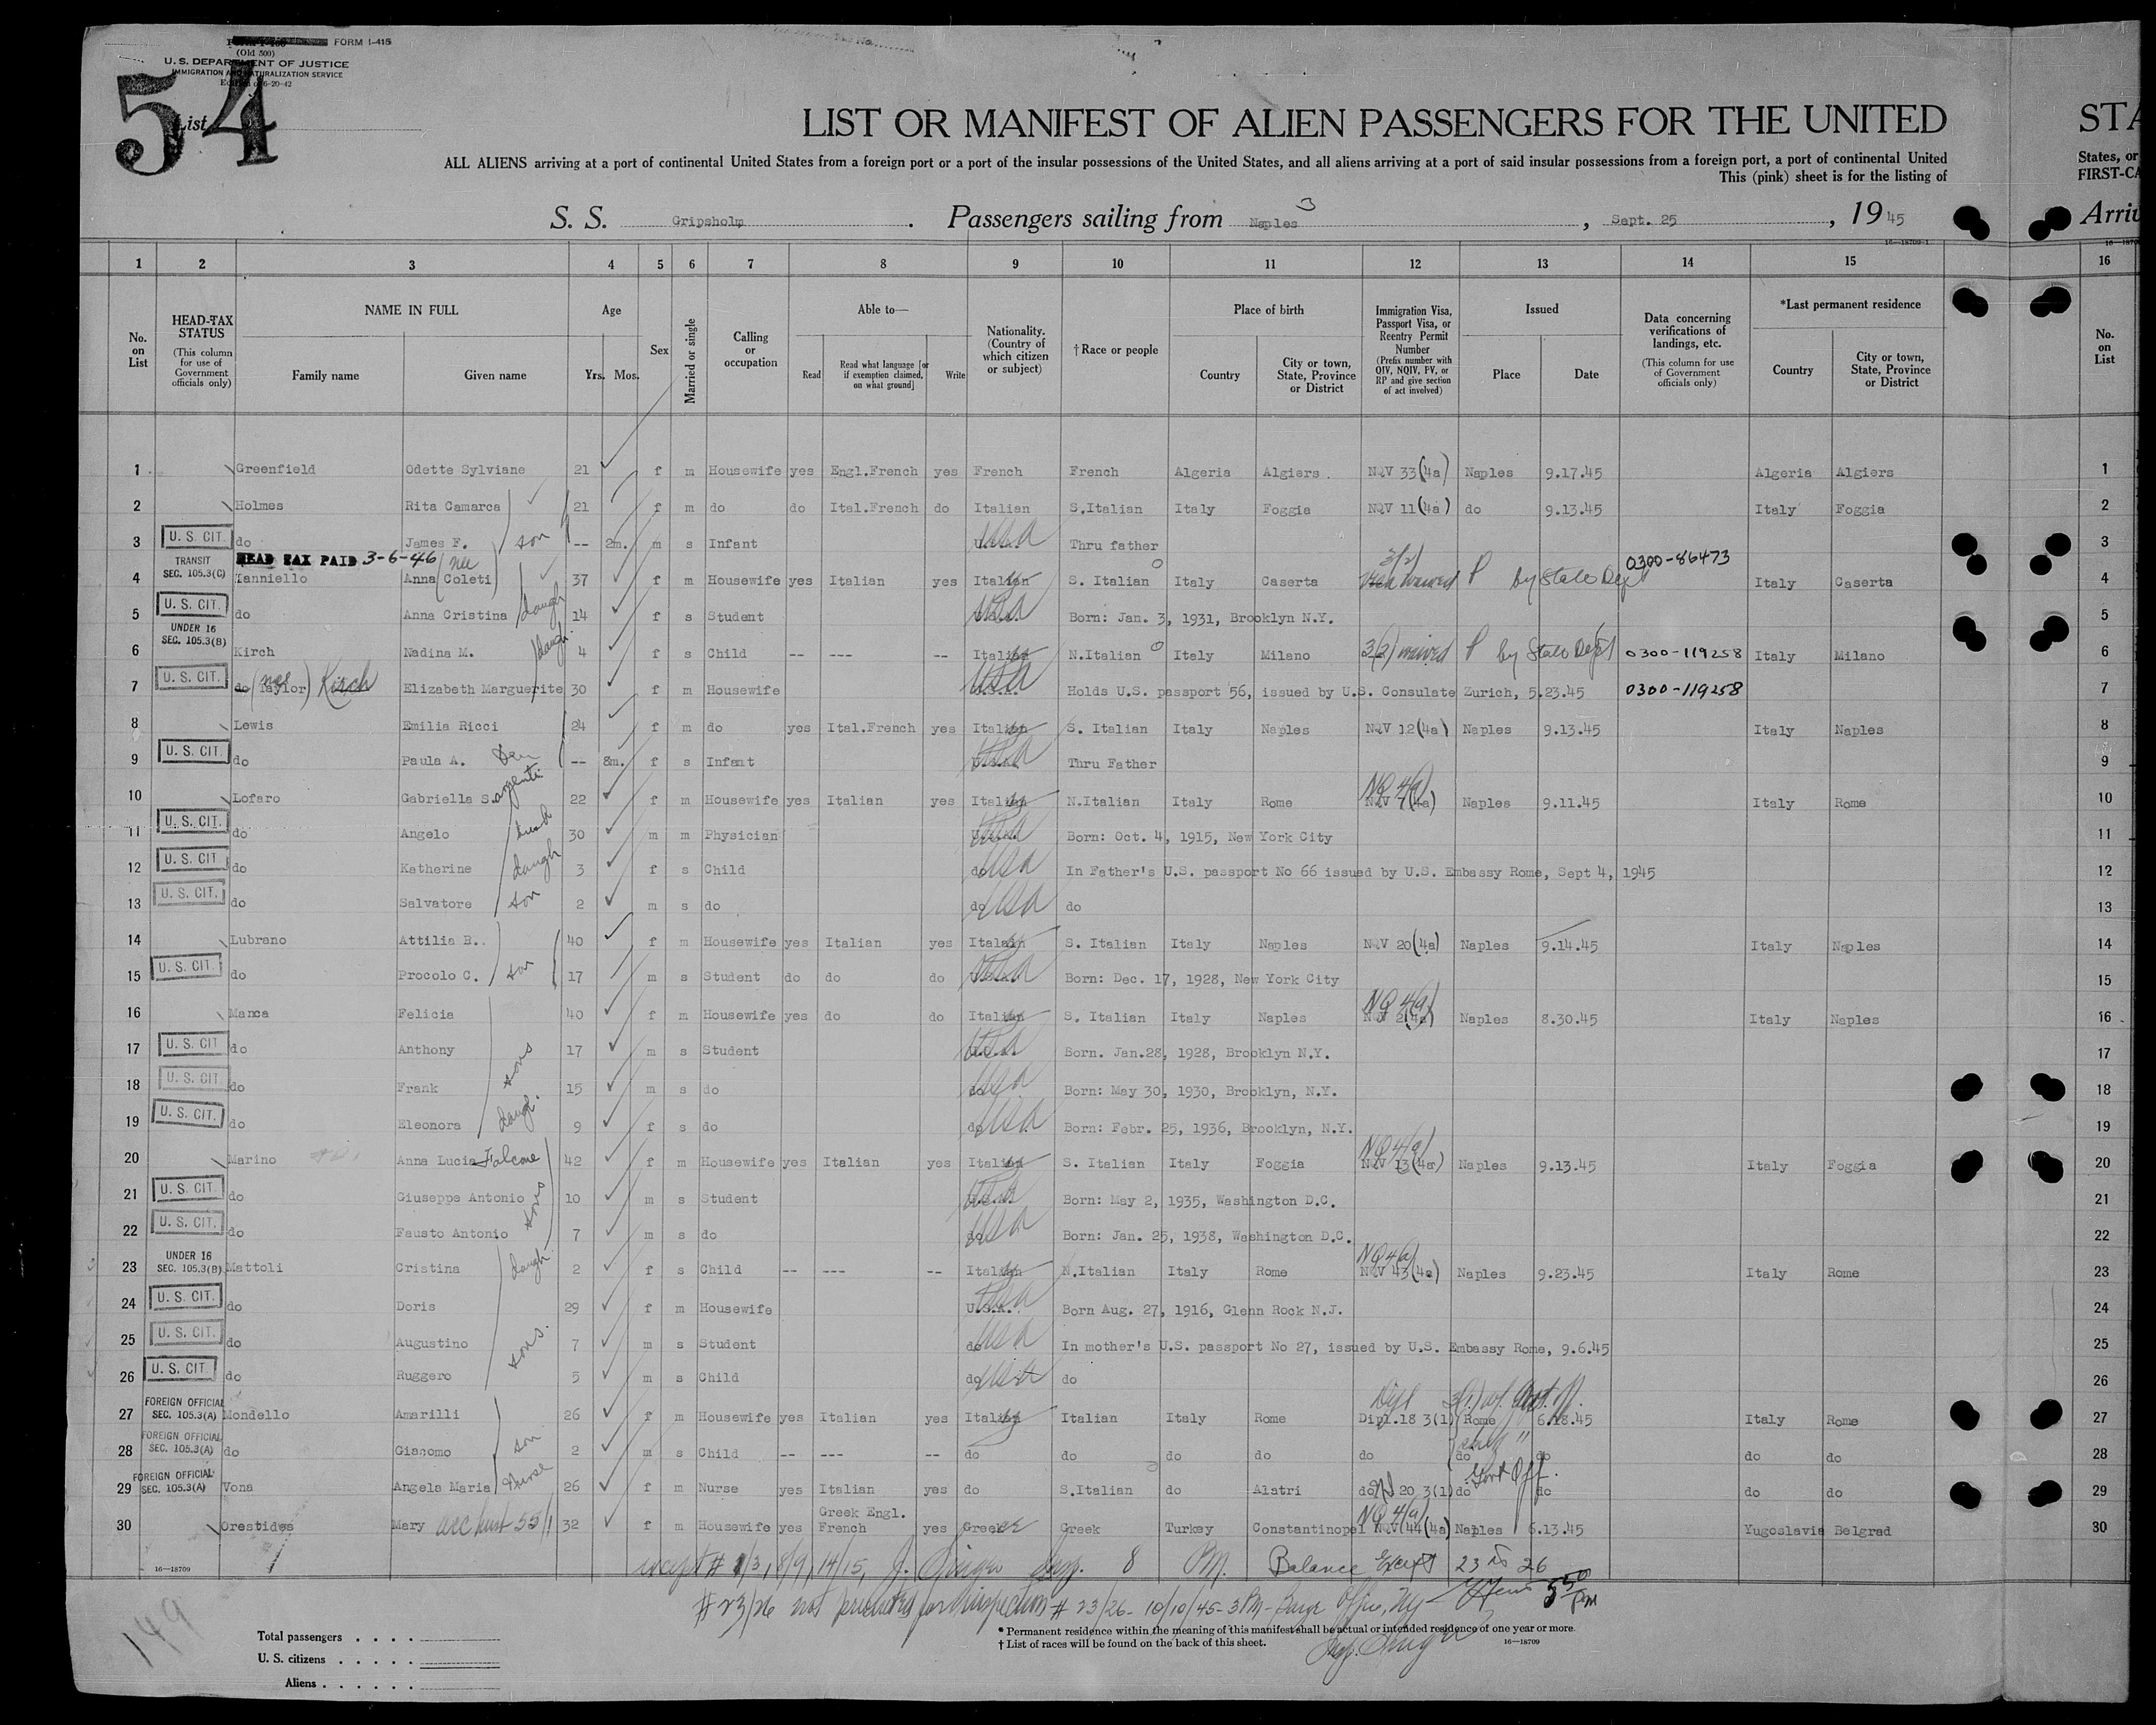 FORM I-415
(Old 500)
U. S. DEPARTMENT OF JUSTICE
IMMIGRATION AND NATURALIZATION SERVICE
54
List
LIST OR MANIFEST OF ALIEN PASSENGERS FOR THE UNITED STA
ALL ALIENS arriving at a port of continental United States from a foreign port or a port of the insular possessions of the United States, and all aliens arriving at a port of said insular possessions from a foreign port, a port of continental United States, or
This (pink) sheet is for the listing of FIRST-CA
S. S. Gripsholm. Passengers sailing from Naples 3, Sept. 25, 1945 Arriv
16—18709-1
1 2 3 4 5 6 7 8 9 10 11 12 13 14 15 16
No. on List
HEAD-TAX STATUS (This column for use of Government officials only)
NAME IN FULL Family name Given name
Age Yrs. Mos.
Sex
Married or single
Calling or occupation
Able to— Read Read what language [or if exemption claimed, on what ground] Write
Nationality. (Country of which citizen or subject)
†Race or people
Place of birth Country City or town, State, Province or District
Immigration Visa, Passport Visa, or Reentry Permit Number (Prefix number with QIV, NQIV, PV, or RP and give section of act involved)
Issued Place Date
Data concerning verifications of landings, etc. (This column for use of Government officials only)
*Last permanent residence Country City or town, State, Province or District
No. on List
1 Greenfield Odette Sylviane 21 f m Housewife yes Engl.French yes French French Algeria Algiers. NQV 33(4a) Naples 9.17.45 Algeria Algiers 1
2 Holmes Rita Camarca 21 f m do do Ital.French do Italian S.Italian Italy Foggia NQV 11(4a) do 9.13.45 Italy Foggia 2
3 U. S. CIT. do James F. son -- 2m. m s Infant USA Thru father 3
HEAD TAX PAID 3-6-46 (nee
4 TRANSIT SEC. 105.3(C) Ianniello Anna (Coleti) 37 f m Housewife yes Italian yes Italian S. Italian Italy Caserta 3/2) Visa waived P by State Dept 0300-86473 Italy Caserta 4
5 U. S. CIT. do Anna Cristina daugh 14 f s Student USA Born: Jan. 3, 1931, Brooklyn N.Y. 5
6 UNDER 16 SEC. 105.3(B) Kirch Nadina M. daugh. 4 f s Child -- -- -- Italian N.Italian Italy Milano 3(2) waived P by State Dept 0300-119258 Italy Milano 6
7 U. S. CIT. do (nee Taylor) Kirch Elizabeth Marguerite 30 f m Housewife USA Holds U.S. passport 56, issued by U.S. Consulate Zurich, 5.23.45 0300-119258 7
8 Lewis Emilia Ricci 24 f m do yes Ital.French yes Italian S. Italian Italy Naples NQV 12(4a) Naples 9.13.45 Italy Naples 8
9 U. S. CIT. do Paula A. -- 8m. f s Infant USA Thru Father 9
10 Lofaro Gabriella S. argenti 22 f m Housewife yes Italian yes Italian N.Italian Italy Rome NQ 4(a) Naples 9.11.45 Italy Rome 10
11 U. S. CIT. do Angelo husb 30 m m Physician USA Born: Oct. 4, 1915, New York City 11
12 U. S. CIT. do Katherine daugh 3 f s Child do USA In Father's U.S. passport No 66 issued by U.S. Embassy Rome, Sept 4, 1945 12
13 U. S. CIT. do Salvatore son 2 m s do do USA do 13
14 Lubrano Attilia R. 40 f m Housewife yes Italian yes Italian S. Italian Italy Naples NQV 20(4a) Naples 9.14.45 Italy Naples 14
15 U. S. CIT. do Procolo C. son 17 m s Student do do do USA Born: Dec. 17, 1928, New York City 15
16 Manca Felicia 40 f m Housewife yes do do Italian S. Italian Italy Naples NQ 4(a) NQV 2(4a) Naples 8.30.45 Italy Naples 16
17 U. S. CIT do Anthony sons 17 m s Student USA Born. Jan.28, 1928, Brooklyn N.Y. 17
18 U. S. CIT do Frank 15 m s do do USA Born: May 30, 1930, Brooklyn, N.Y. 18
19 U. S. CIT. do Eleonora daugh. 9 f s do do USA Born: Febr. 25, 1936, Brooklyn, N.Y. 19
20 Marino Anna Lucia Falcone 42 f m Housewife yes Italian yes Italian S. Italian Italy Foggia NQ 4(a) NQV 13(4a) Naples 9.13.45 Italy Foggia 20
21 U. S. CIT. do Giuseppe Antonio sons 10 m s Student USA Born: May 2, 1935, Washington D.C. 21
22 U. S. CIT. do Fausto Antonio 7 m s do do USA Born: Jan. 25, 1938, Washington D.C. 22
23 UNDER 16 SEC. 105.3(B) Mattoli Cristina daugh 2 f s Child -- --- -- Italian N.Italian Italy Rome NQ 4(a) NQV 43(4a) Naples 9.23.45 Italy Rome 23
24 U. S. CIT. do Doris 29 f m Housewife U.S.A. USA Born Aug. 27, 1916, Glenn Rock N.J. 24
25 U. S. CIT. do Augustino sons. 7 m s Student do USA In mother's U.S. passport No 27, issued by U.S. Embassy Rome, 9.6.45 25
26 U. S. CIT do Ruggero 5 m s Child do USA do 26
27 FOREIGN OFFICIAL SEC. 105.3(A) Mondello Amarilli 26 f m Housewife yes Italian yes Italian Italian Italy Rome Dipl Dipl.18 3(1) Rome 6.18.45 Italy Rome 27
28 FOREIGN OFFICIAL SEC. 105.3(A) do Giacomo son 2 m s Child -- --- -- do do do do do do do do do 28
29 FOREIGN OFFICIAL SEC. 105.3(A) Vona Angela Maria Nurse 26 f m Nurse yes Italian yes do S.Italian do Alatri do 20 3(1) do Govt Off. do do do 29
30 Orestides Mary acc husb 55/1 32 f m Housewife yes Greek Engl. French yes Greek Greek Turkey Constantinopel NQ 4(a) NQV 44(4a) Naples 6.13.45 Yugoslavia Belgrad 30
16—18709
except # 1/3, 8/9, 14/15, J. Singer Insp. 8 PM. Balance Except 23 to 26
# 23/26 not presented for inspection # 23/26 - 10/10/45 - 3PM - Barge Office, NY 5 50 pm
149
Total passengers . . . .
U. S. citizens . . . . .
Aliens . . . . . .
* Permanent residence within the meaning of this manifest shall be actual or intended residence of one year or more.
† List of races will be found on the back of this sheet.
16—18709
Insp. Singer